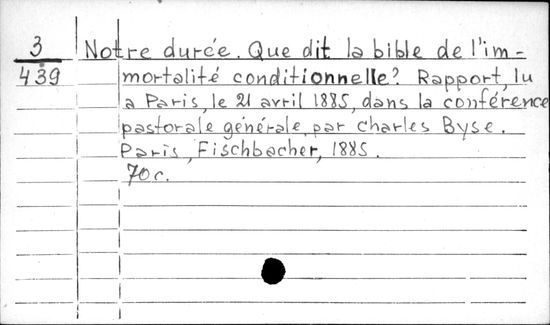 3 Notre durée. Que dit la bible de l'im-
439 mortalité conditionnelle? Rapport, lu
a Paris, le 21 avril 1885, dans la conférence
pastorale générale, par Charles Byse.
Paris, Fischbacher, 1885.
70 c.